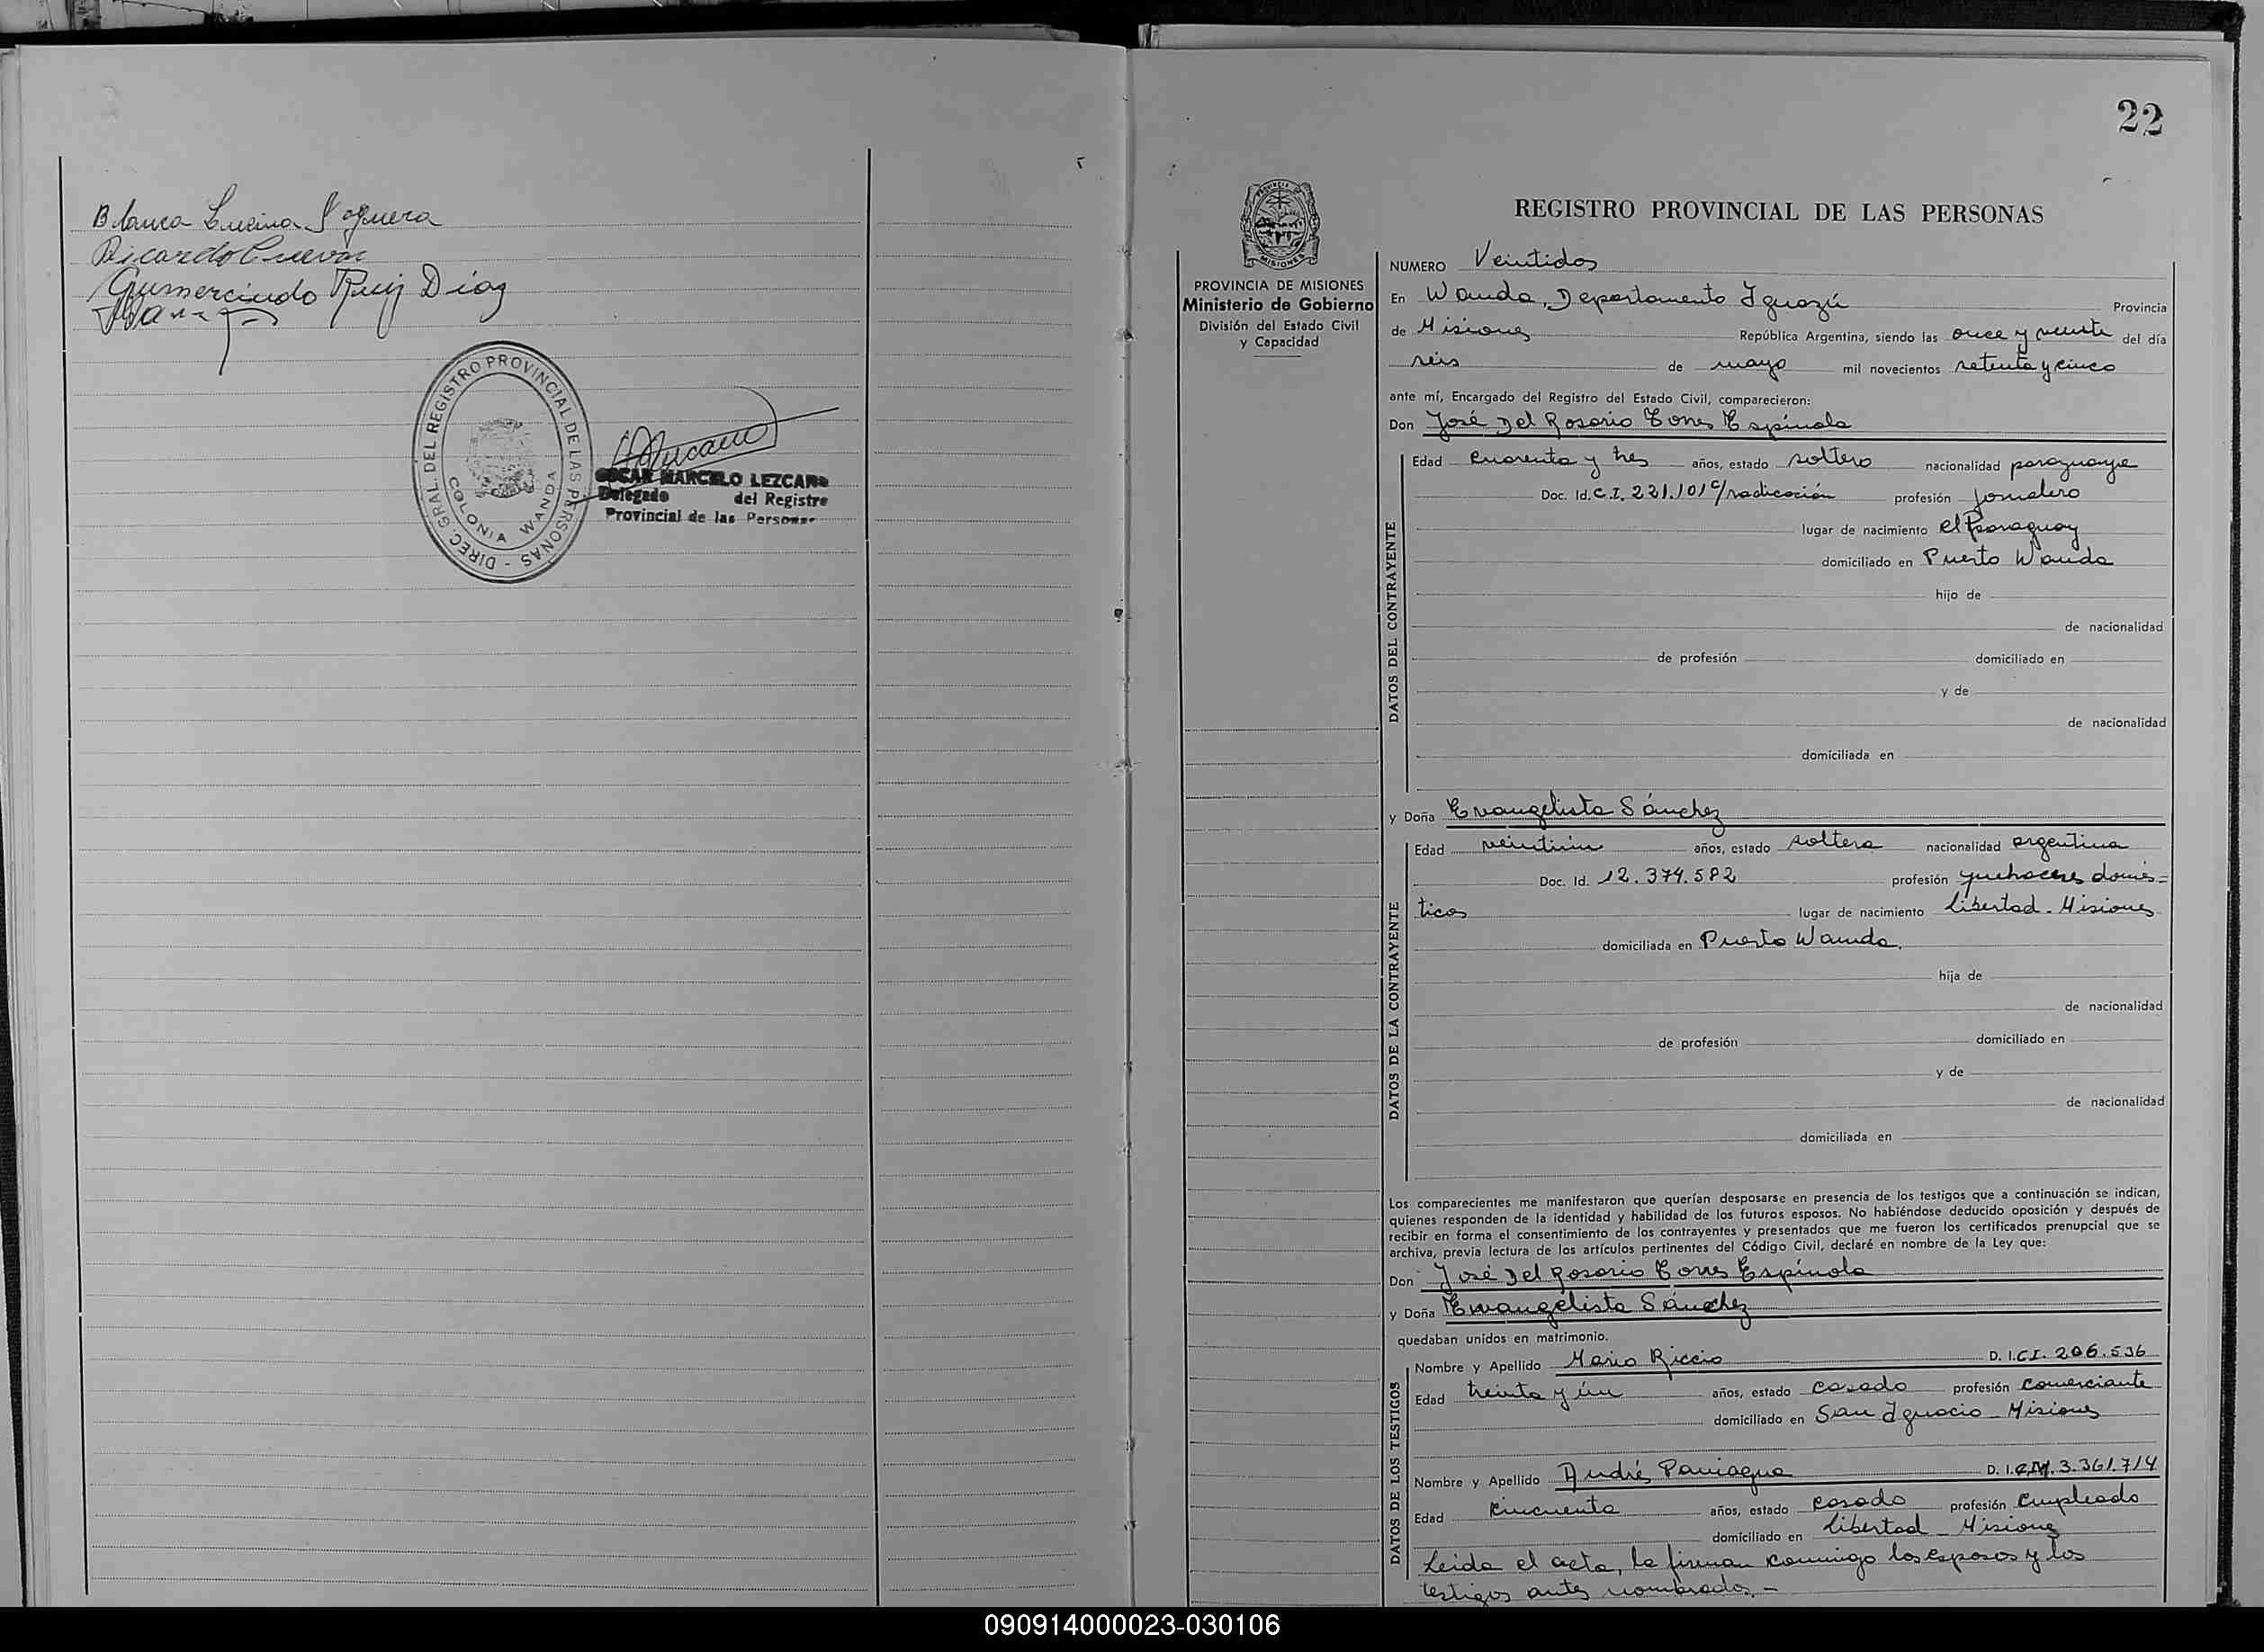 Blanca Lucina Noguera
Ricardo Cuevas
Gumercindo Ruiz Diaz
DIREC. GRAL. DEL REGISTRO PROVINCIAL DE LAS PERSONAS -
COLONIA WANDA
OSCAR MARCELO LEZCANO
Delegado del Registro
Provincial de las Personas
22
PROVINCIA DE MISIONES
Ministerio de Gobierno
División del Estado Civil
y Capacidad
REGISTRO PROVINCIAL DE LAS PERSONAS
NUMERO Veintidos
En Wanda, Departamento Iguazú Provincia
de Misiones República Argentina, siendo las once y veinte del día
seis de mayo mil novecientos setenta y cinco
ante mí, Encargado del Registro del Estado Civil, comparecieron:
Don José Del Rosario Torres Espínola
DATOS DEL CONTRAYENTE
Edad cuarenta y tres años, estado soltero nacionalidad paraguaya
Doc. Id. C.I. 221.101 c/radicación profesión jornalero
lugar de nacimiento el Paraguay
domiciliado en Puerto Wanda
hijo de
de nacionalidad
de profesión domiciliado en
y de
de nacionalidad
domiciliada en
y Doña Evangelista Sánchez
DATOS DE LA CONTRAYENTE
Edad veintiún años, estado soltera nacionalidad argentina
Doc. Id. 12.374.582 profesión quehaceres domés=
ticos lugar de nacimiento Libertad - Misiones
domiciliada en Puerto Wanda.
hija de
de nacionalidad
de profesión domiciliado en
y de
de nacionalidad
domiciliada en
Los comparecientes me manifestaron que querían desposarse en presencia de los testigos que a continuación se indican,
quienes responden de la identidad y habilidad de los futuros esposos. No habiéndose deducido oposición y después de
recibir en forma el consentimiento de los contrayentes y presentados que me fueron los certificados prenupcial que se
archiva, previa lectura de los artículos pertinentes del Código Civil, declaré en nombre de la Ley que:
Don José Del Rosario Torres Espínola
y Doña Evangelista Sánchez
quedaban unidos en matrimonio.
DATOS DE LOS TESTIGOS
Nombre y Apellido Mario Riccio D. I. C.I. 206.536
Edad treinta y ún años, estado casado profesión comerciante
domiciliado en San Ignacio - Misiones
Nombre y Apellido Andrés Paniagua D. I. 3.361.714
Edad cincuenta años, estado casado profesión empleado
domiciliado en Libertad - Misiones
Leida el acta, la firman conmigo los esposos y los
testigos antes nombrados. -
090914000023-030106